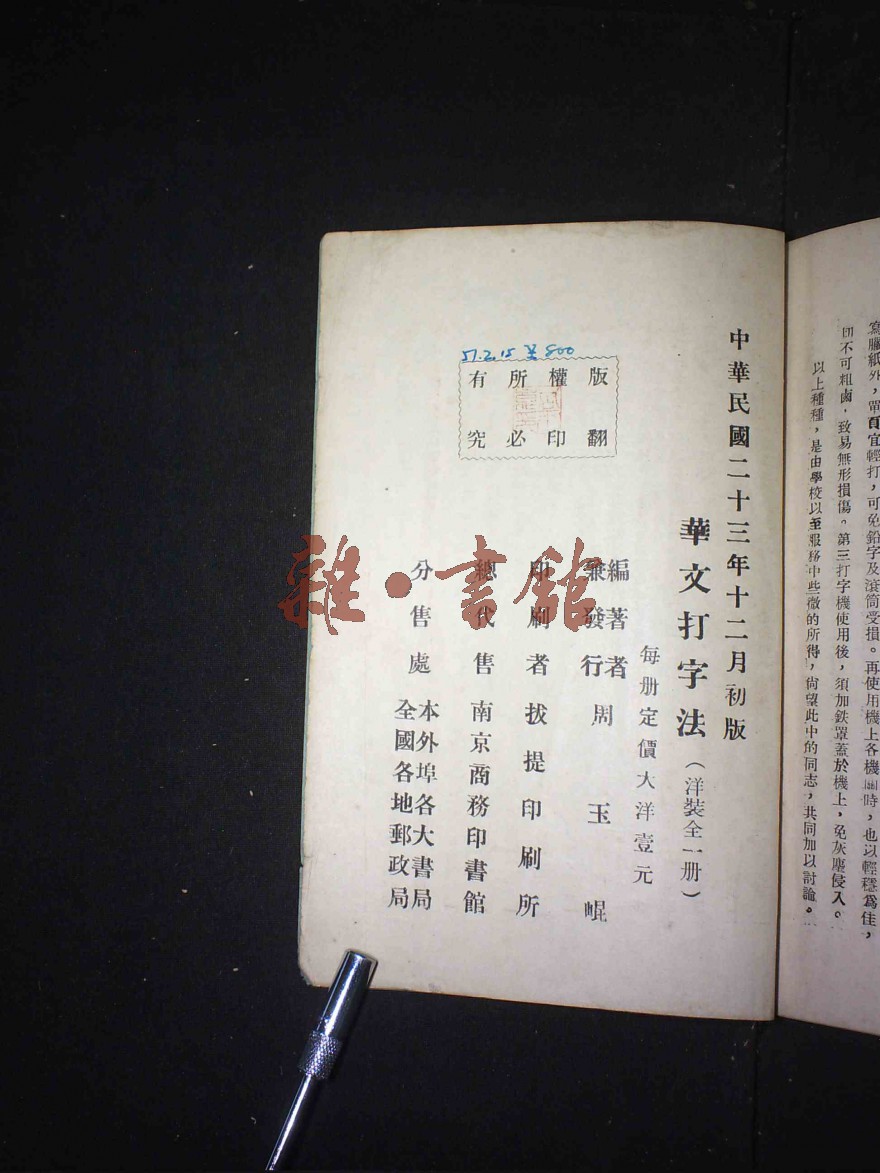 寫臘紙外，單頁宜輕打，可免鉛字及滾筒受損。再使用機上各機關時，也以輕穩爲佳，
切不可粗鹵，致易無形損傷。第三打字機使用後，須加鉄罩蓋於機上，免灰塵侵入。
以上種種，是由學校以至服務中些微的所得，尙望此中的同志，共同加以討論。
中華民國二十三年十二月初版
華文打字法（洋裝全一册）
每册定價大洋壹元
編著者
兼發行 周玉崐
印刷者 拔提印刷所
總代售 南京商務印書館
分售處 本外埠各大書局
全國各地郵政局
版權所有
翻印必究
51.2.15 ¥800
雜·書館